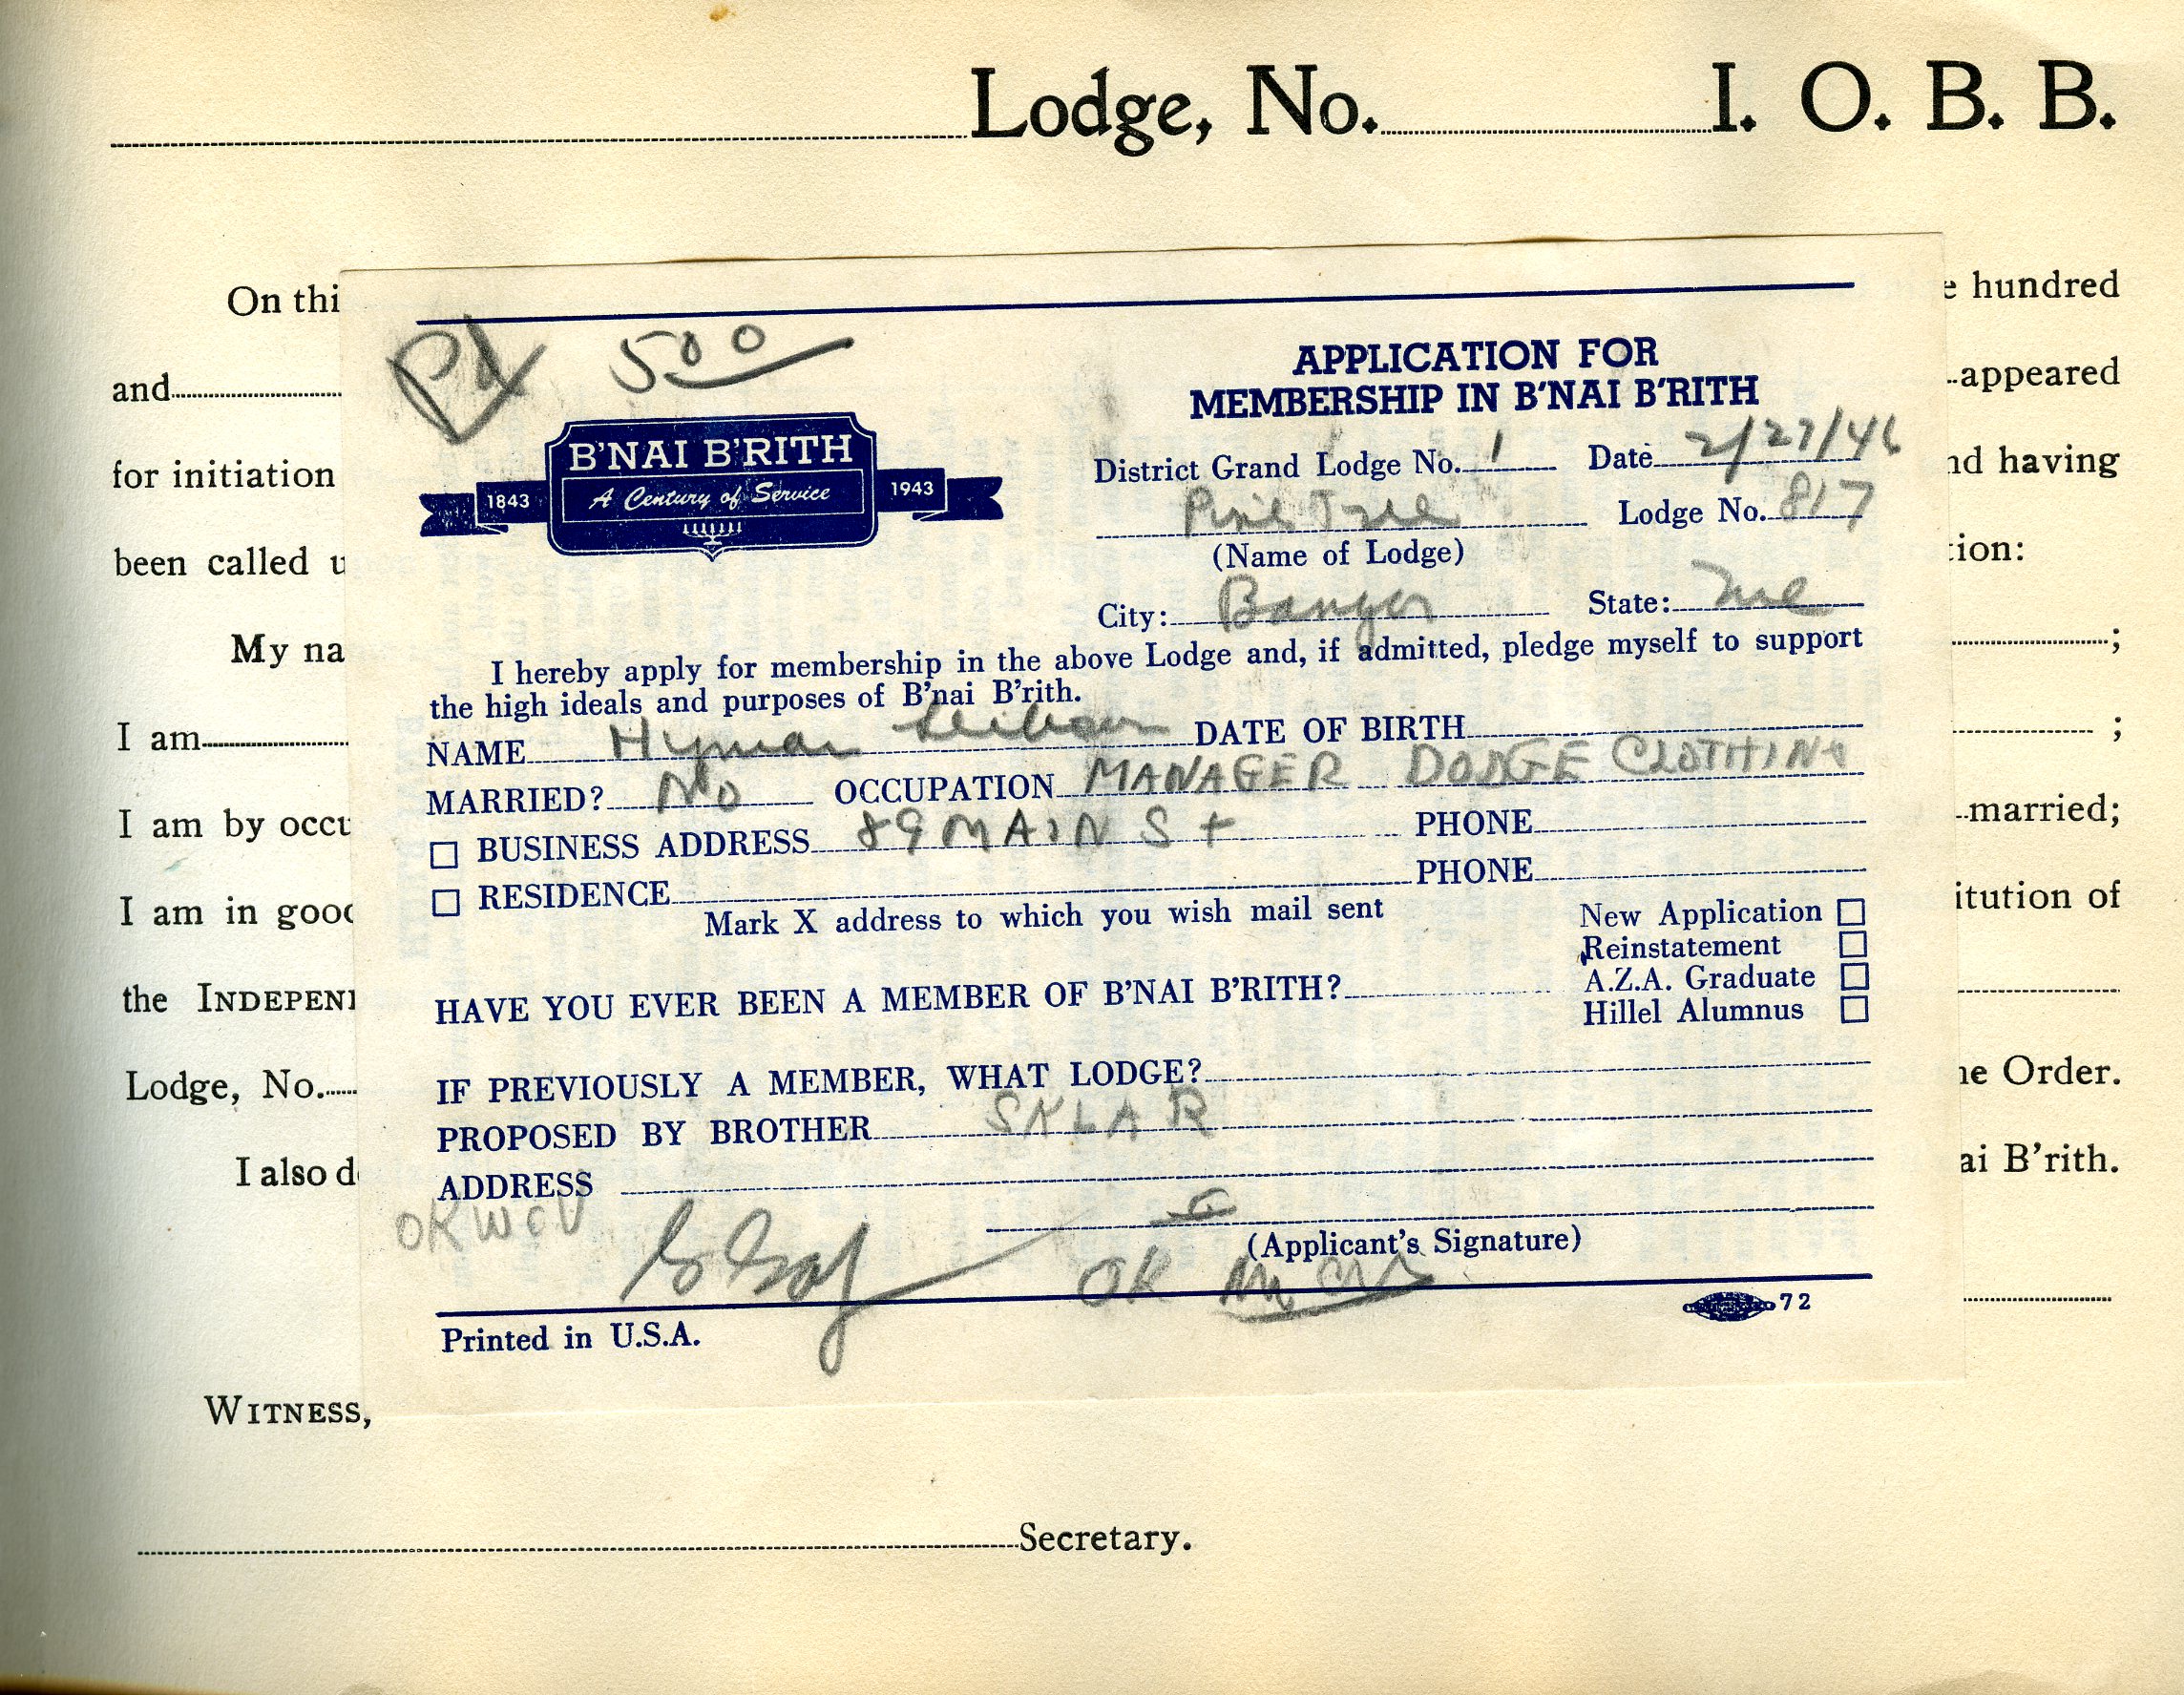 Lodge, No. I. O. B. B.
On thi e hundred
and appeared
for initiation nd having
been called u tion:
My na ;
I am ;
I am by occu married;
I am in good itution of
the INDEPEN
Lodge, No. he Order.
I also d ai B'rith.
WITNESS,
Secretary.
Pd 5 00
APPLICATION FOR
MEMBERSHIP IN B'NAI B'RITH
B'NAI B'RITH
1843 A Century of Service 1943
District Grand Lodge No. 1 Date 2/27/46
Pine Tree Lodge No. 817
(Name of Lodge)
City: Bangor State: Me
I hereby apply for membership in the above Lodge and, if admitted, pledge myself to support
the high ideals and purposes of B'nai B'rith.
NAME Hyman DATE OF BIRTH
MARRIED? No OCCUPATION MANAGER DODGE CLOTHING
BUSINESS ADDRESS 89 MAIN St PHONE
RESIDENCE PHONE
Mark X address to which you wish mail sent
New Application
Reinstatement
A.Z.A. Graduate
Hillel Alumnus
HAVE YOU EVER BEEN A MEMBER OF B'NAI B'RITH?
IF PREVIOUSLY A MEMBER, WHAT LODGE?
PROPOSED BY BROTHER SKLAR
ADDRESS
OK
(Applicant's Signature)
OK
72
Printed in U.S.A.